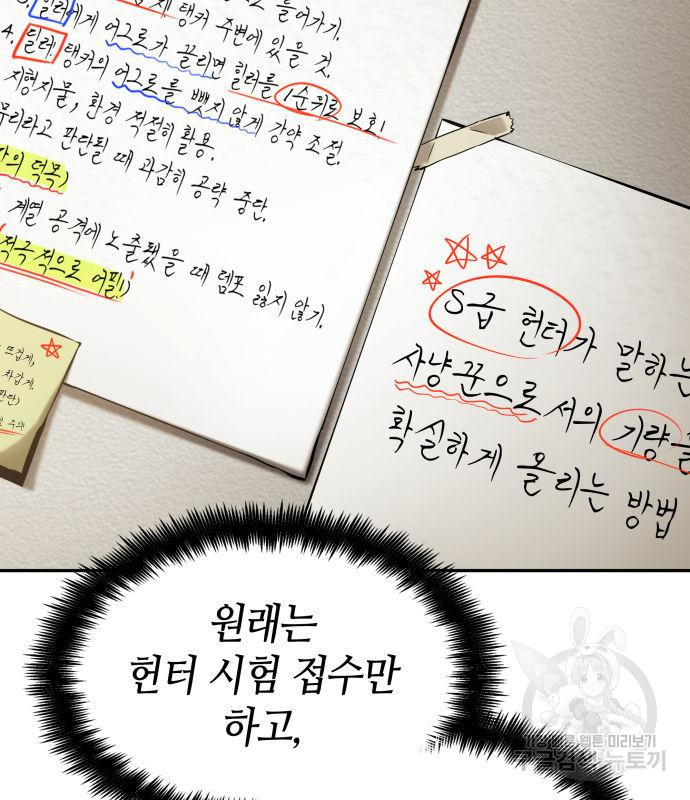 들어가기.
탱커 주변에 있을 것.
3. 힐러에게 어그로가 끌리면 힐러를 1순위로 보호!
4. 딜러! 탱커의 어그로를 뺏지 않게 강약 조절.
지형지물, 환경 적절히 활용.
무리라고 판단될 때 과감히 공략 중단.
의 덕목)
계열 공격에 노출됐을 때 템포 잃지 않기.
적극적으로 어필!)
뜨겁게,
차갑게.
판단)
주의!
S급 헌터가 말하는
사냥꾼으로서의 기량을
확실하게 올리는 방법
원래는
헌터 시험 접수만
하고,
웹툰 미리보기
뉴토끼